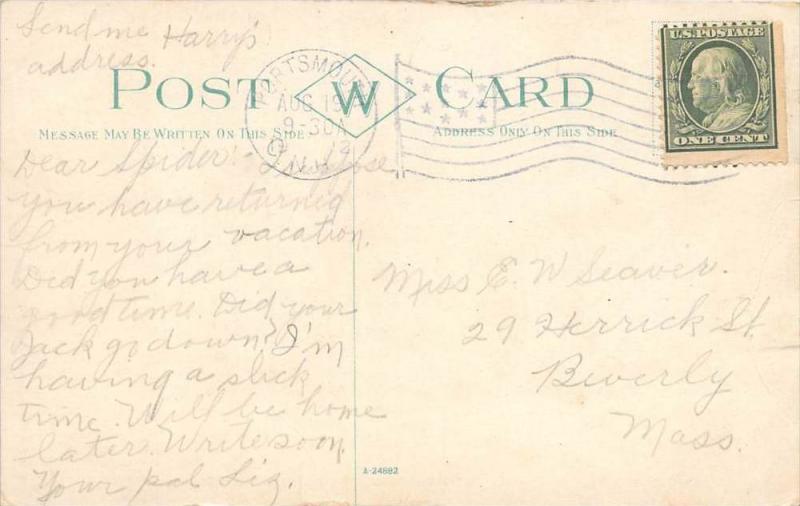 Send me Harry's
address.
POST W CARD
MESSAGE MAY BE WRITTEN ON THIS SIDE
ADDRESS ONLY ON THIS SIDE
PORTSMOUTH
AUG 19
9-30A
N.H.
U.S. POSTAGE
ONE CENT
Dear Spider:- I suppose
you have returned
from your vacation.
Did you have a
good time. Did your
Jack go down? I'm
having a slick
time. Will be home
later. Write soon.
Your pal Liz.
Miss E. W Seaver.
29 Herrick St.
Beverly
Mass.
A-24882